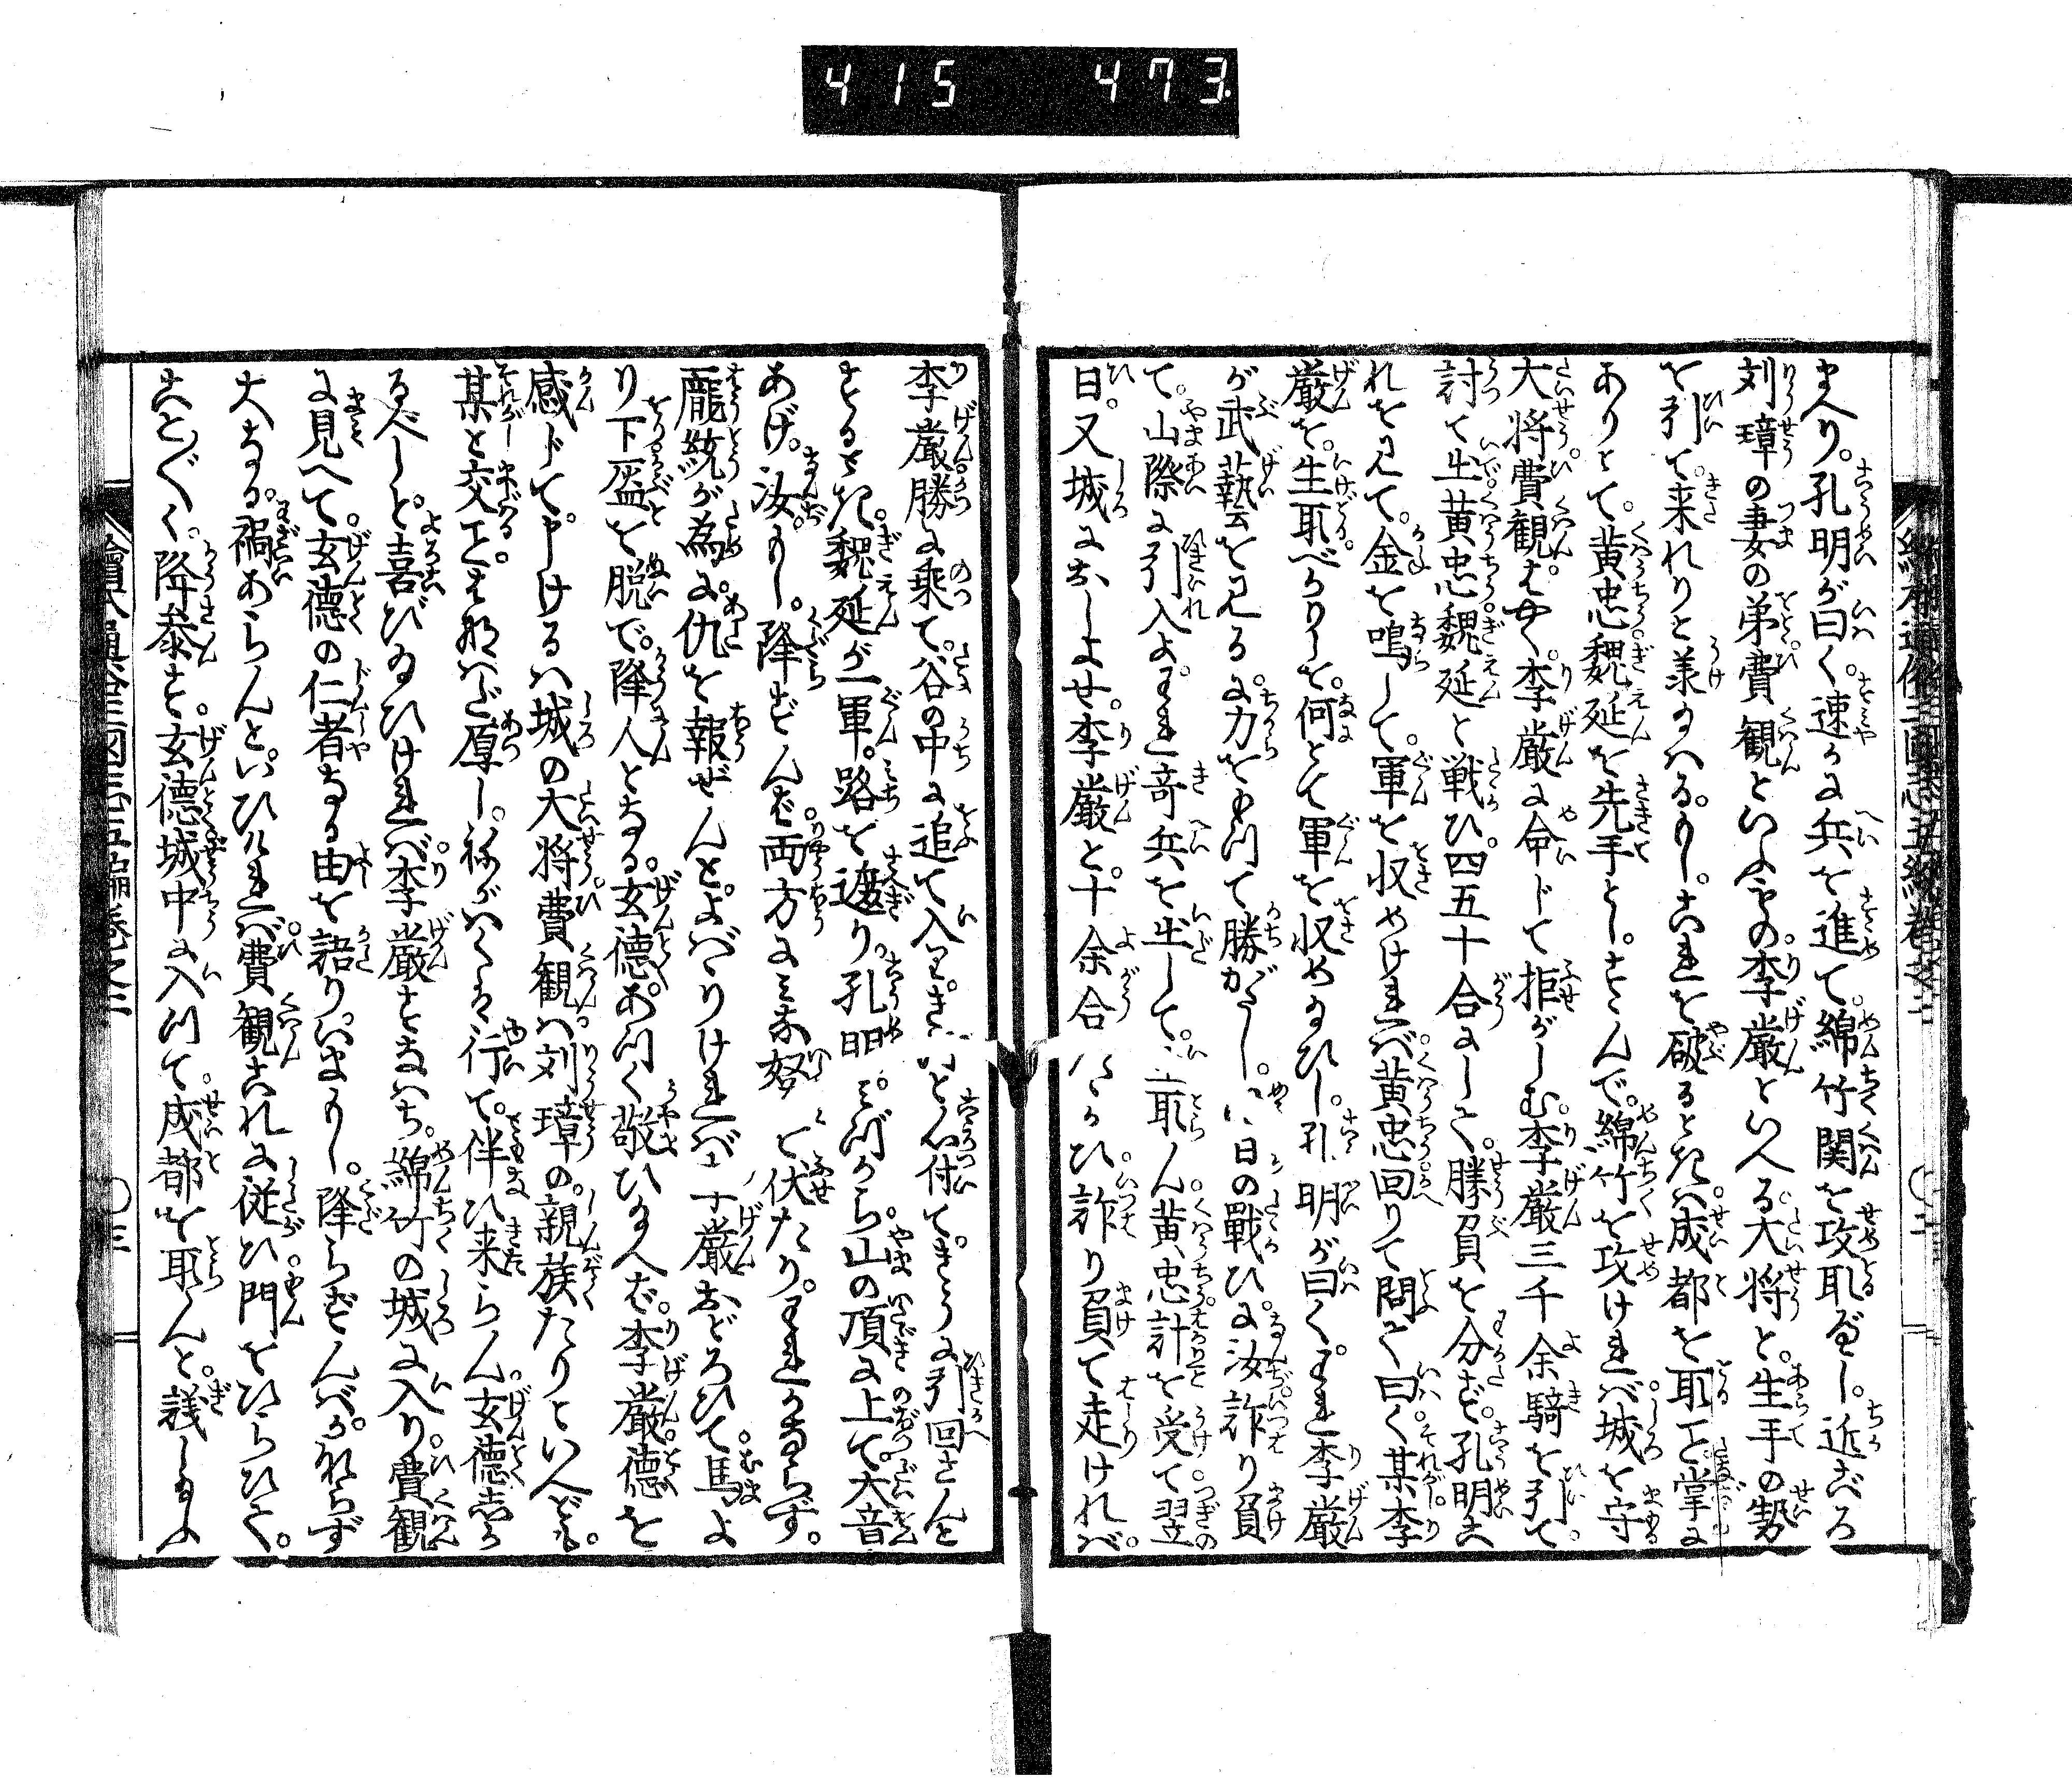 415 473
まへり。孔明が曰く。速かに兵を進て。綿竹関を攻取べし。近ごろ
刘璋の妻の弟費観といふもの。李厳といへる大将と。生手の勢
を引て。来れりと羕るへる。もしこれを破るときハ。成都を取こと掌に
ありとて。黄忠魏延を先手とし。すゝんで。綿竹を攻けれバ。城を守
大将費観。はやく李厳に命じて拒がしむ。李厳三千余騎を引て。
討て出。黄忠魏延と戦ひ。四五十合にして。勝負を分ず。孔明こ
れを見て。金を鳴して。軍を収めけれバ。黄忠回りて問て曰く。某李
厳を。生取べかりしを。何とて軍を収めたまひし。孔明が曰く。われ李厳
が武藝を見るに。力をもつて勝がたし。明日の戦ひに。汝詐り負
て。山際に引入よ。われ奇兵を出して。生取ん。黄忠計を受て。翌
日。又城におしよせ。李厳と。十余合たゝかひ。詐り負て走けれバ。
李厳。勝に乗て。谷の中に追て入。こゝろ付て。きうに引回さんと
するとき。魏延が一軍。路を遮り。孔明ミづから。山の頂に上て。大音
あげ。汝もし。降ずんば。両方にミな弩を伏たり。われかならず。
龐統が為に。仇を報ぜんと。よバゝりけれバ。李厳おどろひて。馬よ
り下。盔を脱で。降人となる。玄徳。あつく敬ひたまへば。李厳。徳を
感じて。申けるハ。城の大将費観ハ。刘璋の。親族たりといへども。
某と交こと。はなハだ厚し。ねがハくは。行て。伴ひ来らん。玄徳しか
るべしと。喜びたまひけれバ。李厳すなハち。綿竹の城に入り。費観
に見へて。玄徳の仁者なる由を語り。いまもし。降らずんバ。かならず
大なる。禍あらんと。いひけれバ。費観これに従ひ。門をひらひて。
ことごとく。降参す。玄徳城中に入つて。成都を取んと。議したまふ